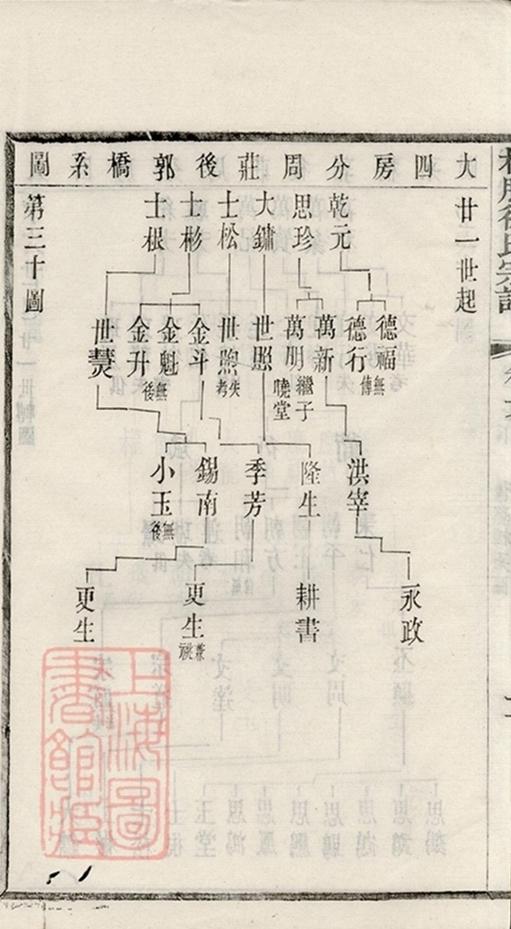 大四房分周莊後郭橋系圖
廿一世起
乾元
思珍
大鏞
士松
士彬
士根
第三十圖
德福 無傳
德行
萬新
萬明 繼子曉堂
世照
世煦 失考
金斗
金魁 無後
金升
世熭
洪宰
隆生
季芳
錫南
小玉 無後
永政
耕書
更生 兼祧
更生
上海圖書館藏